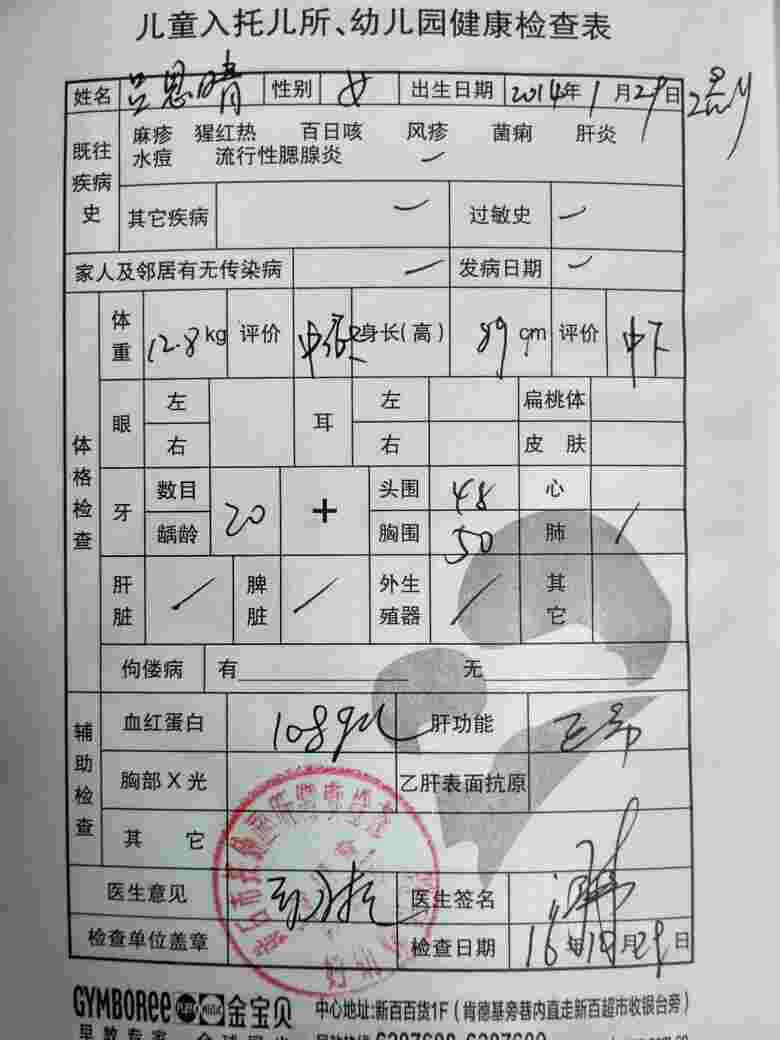 儿童入托儿所、幼儿园健康检查表
姓名 吕思晴 性别 女 出生日期 2014年1月29日
既往疾病史 麻疹 猩红热 百日咳 风疹 菌痢 肝炎
水痘 流行性腮腺炎 —
其它疾病 — 过敏史 —
家人及邻居有无传染病 — 发病日期 —
体格检查 体重 12.8kg 评价 身长(高) 89cm 评价 中下
眼 左 耳 左 扁桃体
右 右 皮肤
牙 数目 20 + 头围 48 心
龋龄 胸围 50 肺 /
肝脏 / 脾脏 / 外生殖器 / 其它
佝偻病 有 无
辅助检查 血红蛋白 108g/L 肝功能 正常
胸部X光 乙肝表面抗原
其它
医生意见 医生签名
检查单位盖章 检查日期 16年10月29日
GYMBOREE PLAY MUSIC 金宝贝 中心地址:新百百货1F(肯德基旁巷内直走新百超市收银台旁)
早教专家